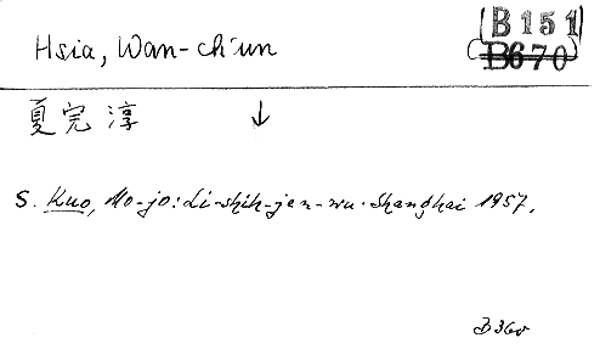 Hsia, Wan-ch'un
(B 151)
(B670)
夏完淳 ↓
S. Kuo, Mo-jo: Li-shih-jen-wu. Shanghai 1957.
B 360